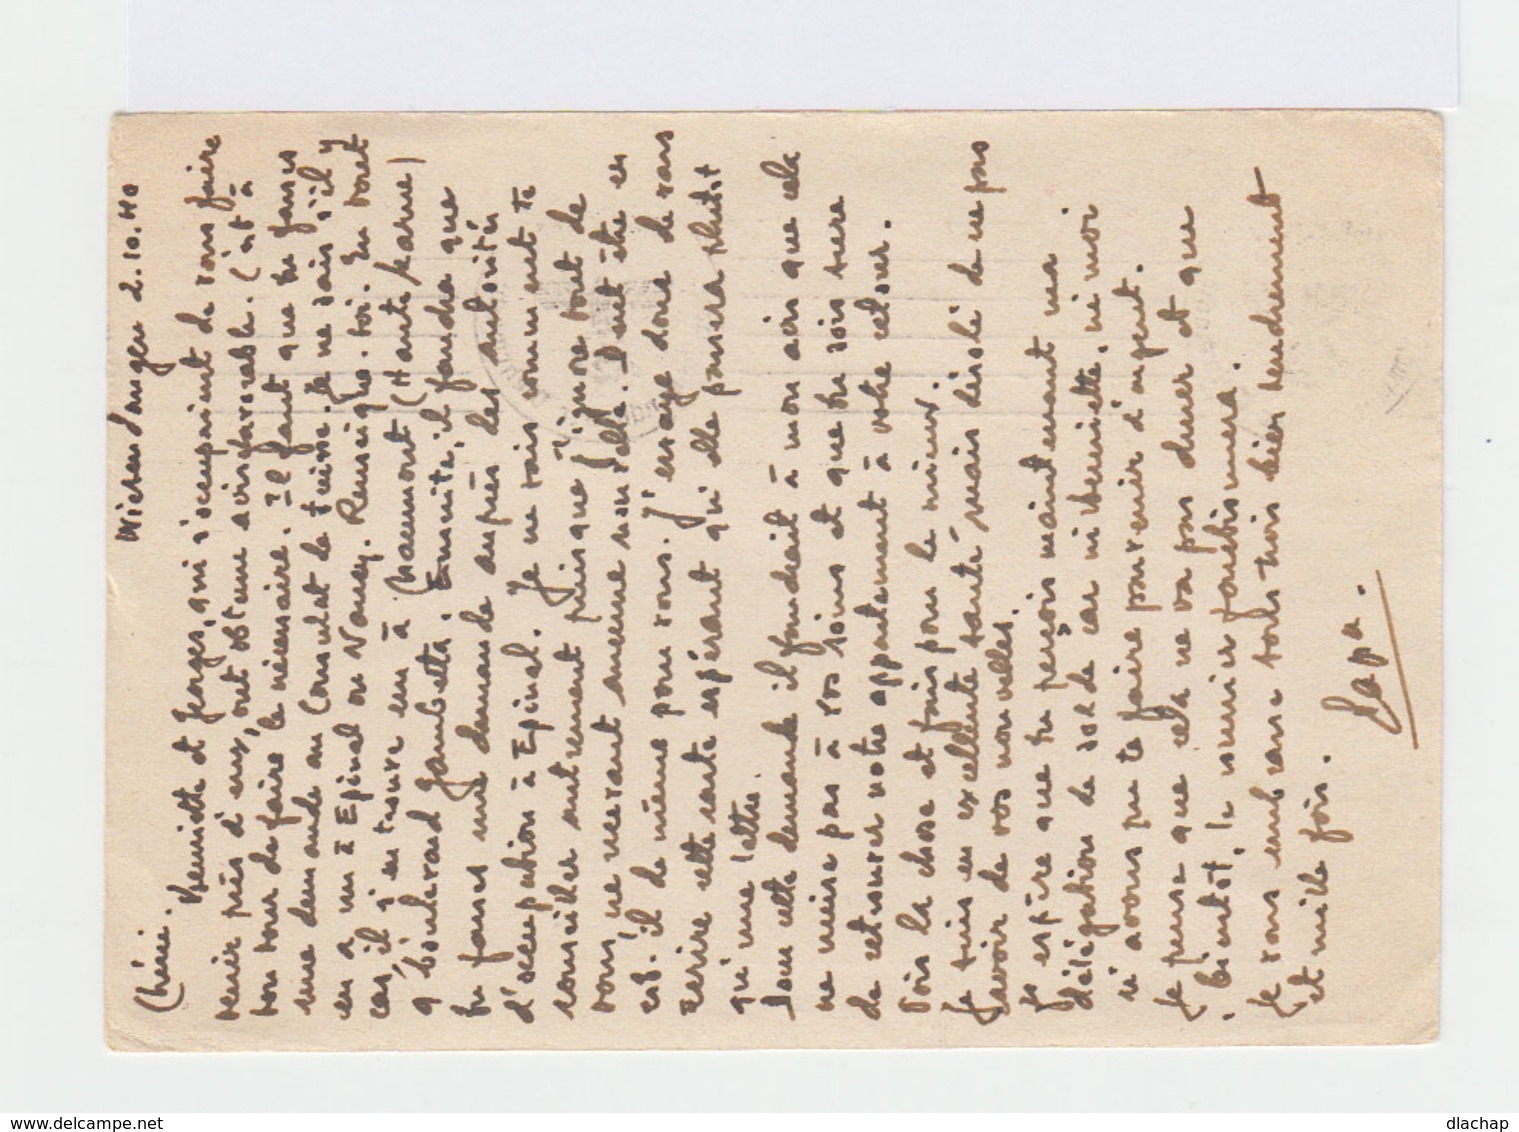 2.10.40
Chérie.
Henriette et Georges, qui s'occupaient de vous faire
venir près d'eux, ont obtenu avis favorable. C'est à
ton tour de faire le nécessaire. Il faut que tu fasses
une demande au Consulat de Suisse. Je ne sais s'il y
en a un à Epinal ou Nancy. Renseigne-toi. En tout
cas, il s'en trouve un à Chaumont (Haute Marne)
9 boulevard Gambetta. Ensuite, il faudra que
tu fasses une demande auprès des autorités
d'occupation à Epinal. Je ne vais comment te
conseiller autrement puisque j'ignore tout de
vous, ne recevant aucune nouvelle. Peut être en
est-il de même pour vous. J'essaye donc de vous
écrire cette carte espérant qu'elle passera plutôt
qu'une lettre.
Pour cette demande il faudrait à mon avis que cela
ne nuise pas à vos soins et que tu sois sure
de retrouver votre appartement à votre retour.
Vois la chose et fais pour le mieux.
Je suis en excellente santé mais désolé de ne pas
savoir de vos nouvelles.
J'espère que tu perçois maintenant ma
délégation de solde car ni Henriette, ni moi
n'avons pu te faire parvenir d'argent.
Je pense que cela ne va pas durer et que
bientôt, le courrier fonctionnera.
Je vous embrasse toutes trois bien tendrement
et mille fois.
Papa.
www.delcampe.net
dlachap